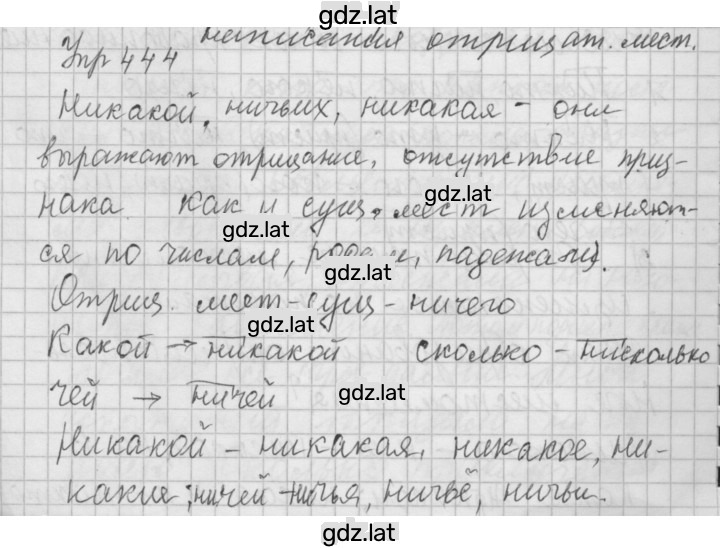 gdz.lat
написания отрицат. мест.
Упр 444
Никакой, ничьих, никакая - они
выражают отрицание, отсутствие приз-
нака. Как и сущ. мест изменяют-
gdz.lat
gdz.lat
ся по числам, родам, падежам).
gdz.lat
Отриц. мест-сущ - ничего
gdz.lat
Какой → никакой сколько - нисколько
чей → ничей
gdz.lat
Никакой - никакая, никакое, ни-
какие; ничей - ничья, ничьё, ничьи.
gdz.lat